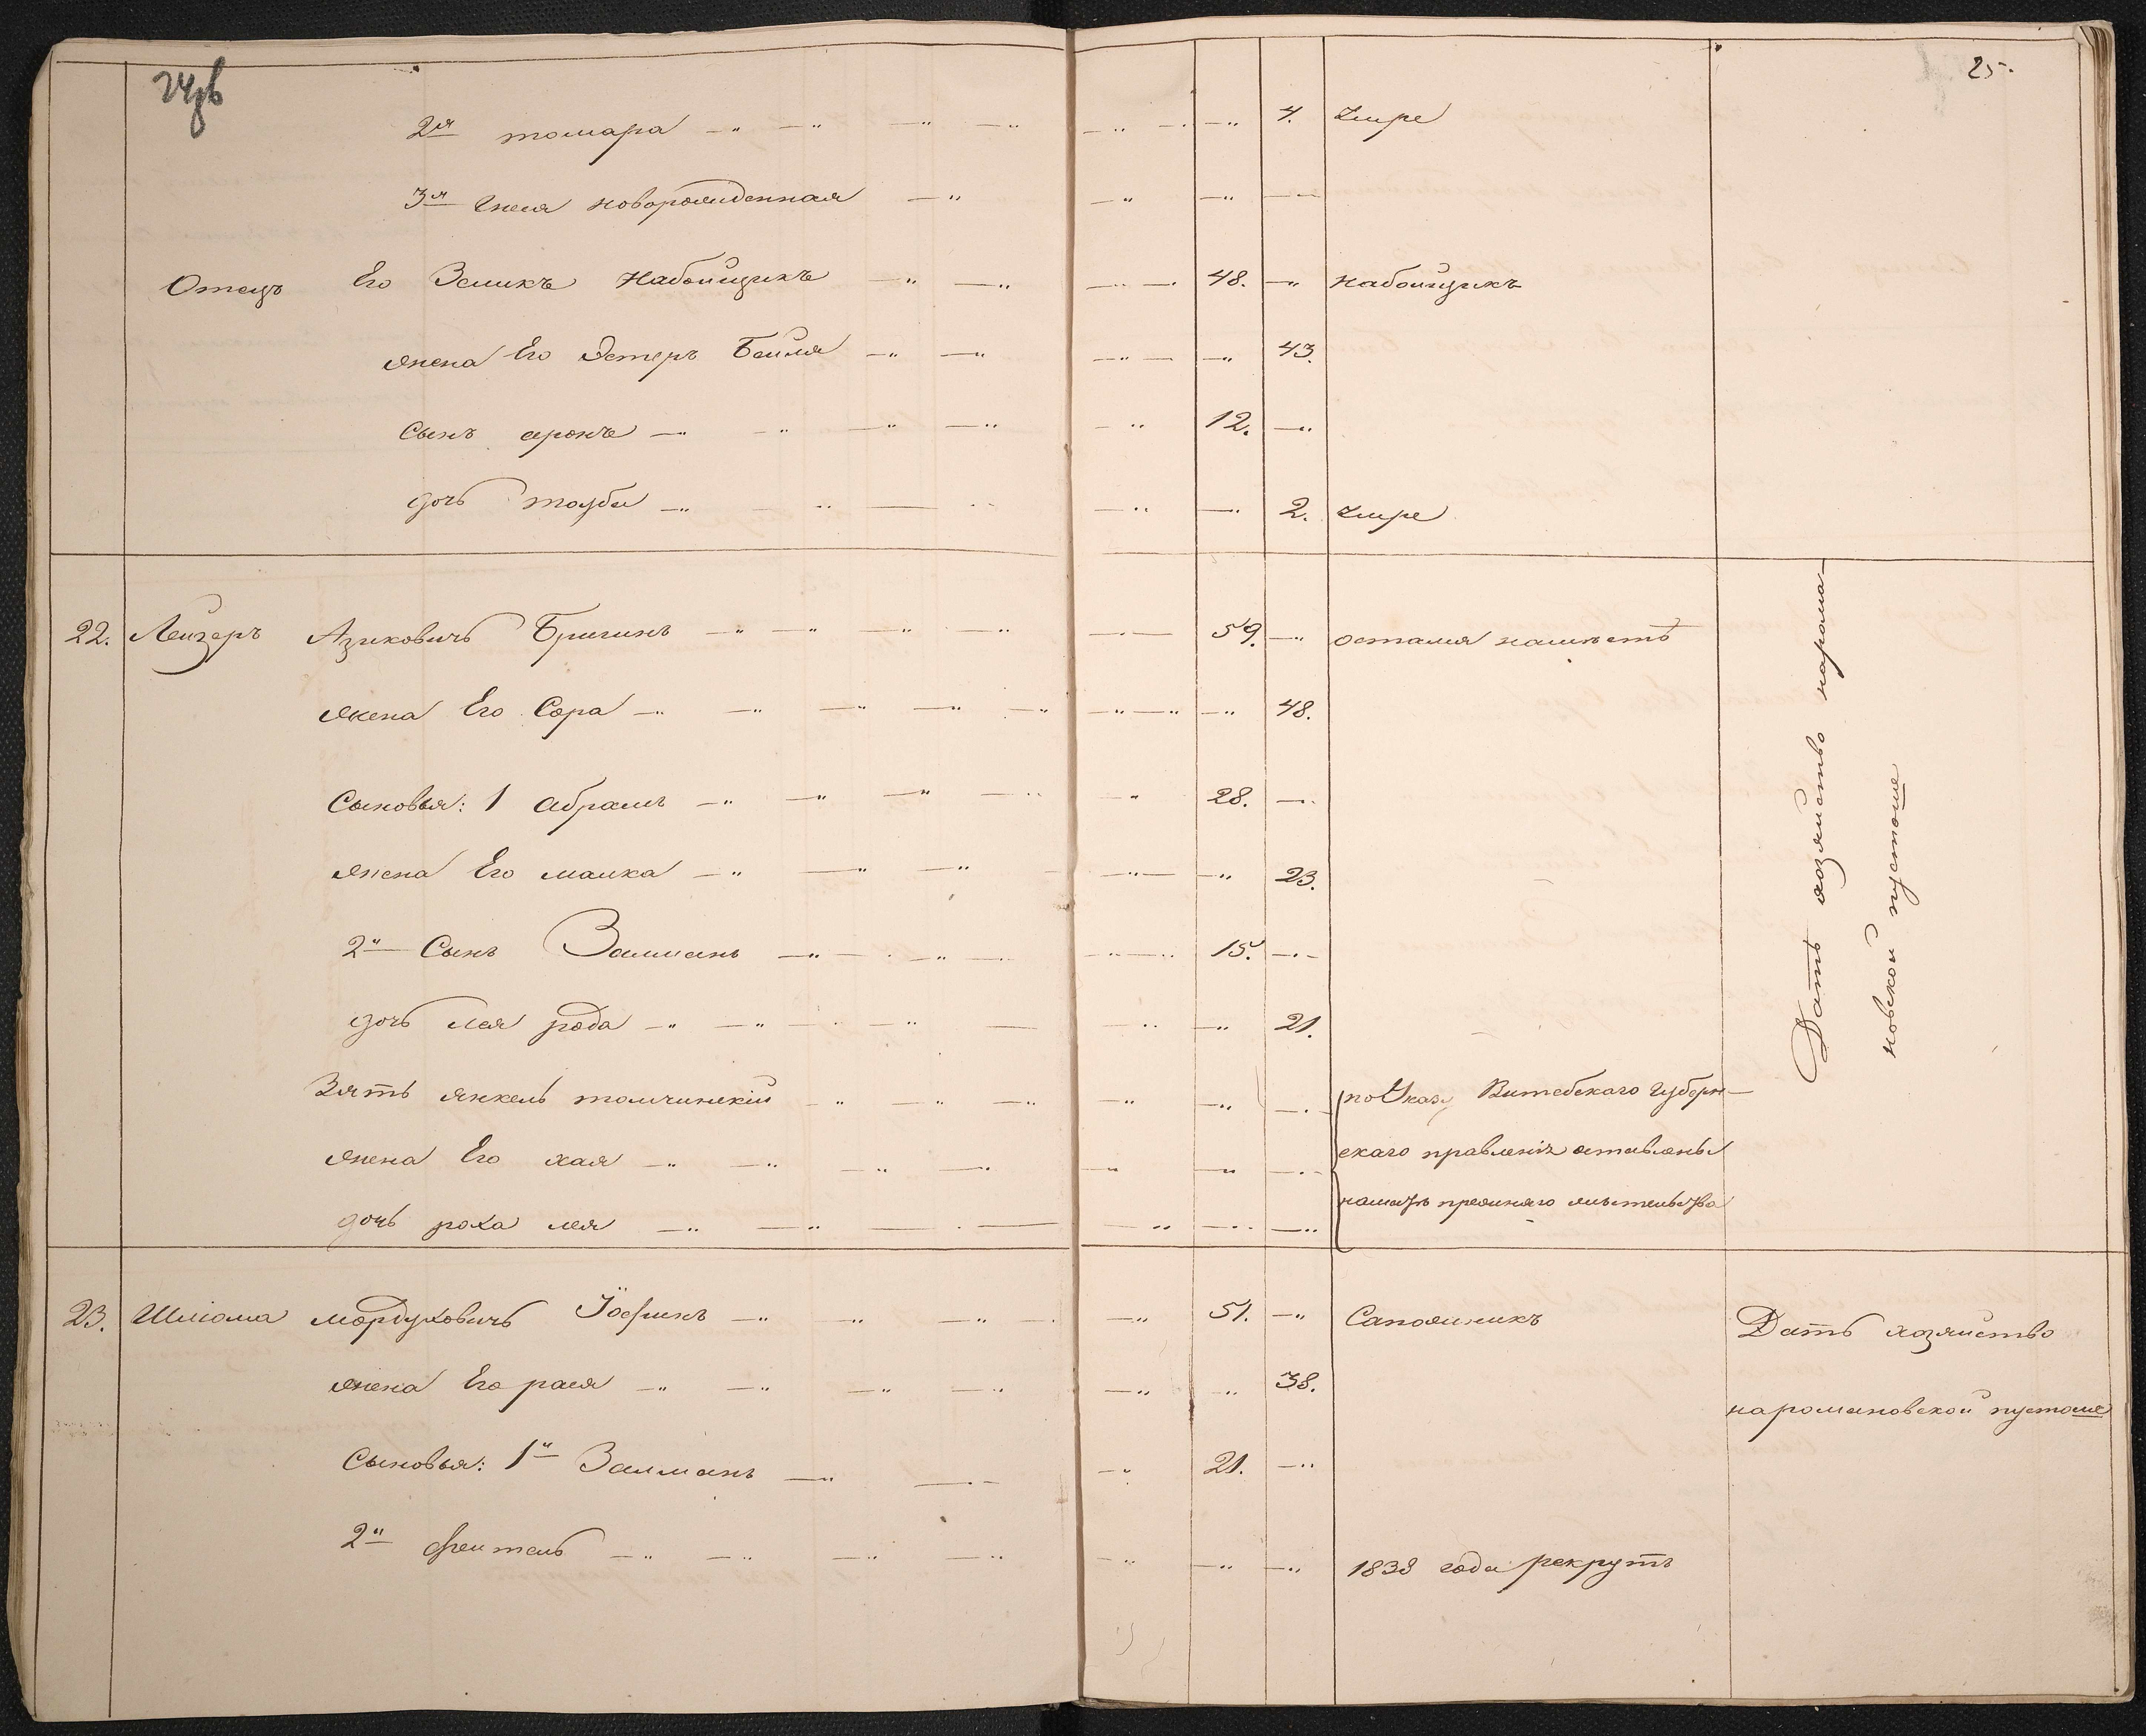 24об
25.
2я томара 4. умре
3я Гнеся новорожденная
Отецъ Его Зеликъ Набойщикъ 48. набойщикъ
жена Его Эстеръ Бейля 43.
Сынъ аронъ 12.
дочь тауба 2. умре
22. Лейзеръ Азиковичъ Бригинъ 59. остался на мѣстѣ
жена Его Сора 48.
Сыновья: 1 абрамъ 28.
жена Его малка 23.
2й Сынъ Залманъ 15.
дочь лея рода 21.
Зять янкель толчинскій по Указу Витебскаго Губерн-
жена Его хая скаго правленія оставлены
дочь роха лея на мѣстѣ прежняго жительства
Дать хозяйство на рома-
новской пустоше
23. Шліома мордуховичъ Іосфинъ 51. Сапожникъ Дать хозяйство
жена Его рася 38. на романовской пустоше
Сыновья: 1й Залманъ 21.
2й фейтель 1838 года рекрутъ